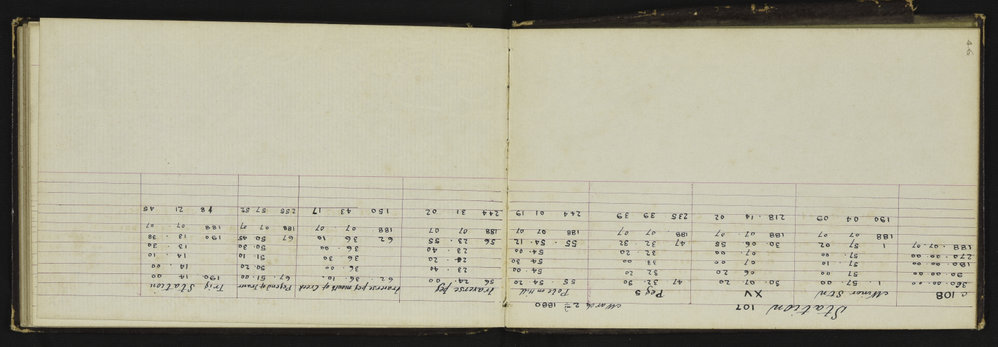 Station 107 March 2nd 1880
c 108 Minor Stn XV Peg S Pole Traverse Peg traverse peg mouth of Creek Peg end of Trav Trig Station
360.00.00 1 57.00 30.07.20 47 32 30 55 54 20 56 24.00 62.36.10 67.51.00 190 14 00
90.00.00 57 00 06 20 32 20 54 00 23 40 36.00 50 20 14 00
180.00.00 57.10 07 00 32 00 54 30 24 20 36 30 51.10 14.10
270.00.00 57 00 07.00 32 20 54.20 23 40 36 00 50.30 13.30
188.07.07 1 57 02 30.06 55 47 32 32 55.54.12 56.23.55 62 36 10 67 50 45 190 13.30
188 07 07 188 07.07 188.07 07 188 07 07 188 07 07 188 07 07 188 07 07 188 07 07
190 04 09 218.14 02 235 39 39 244 01 19 244 31 02 250 43 17 255 57 52 18 21 45
46